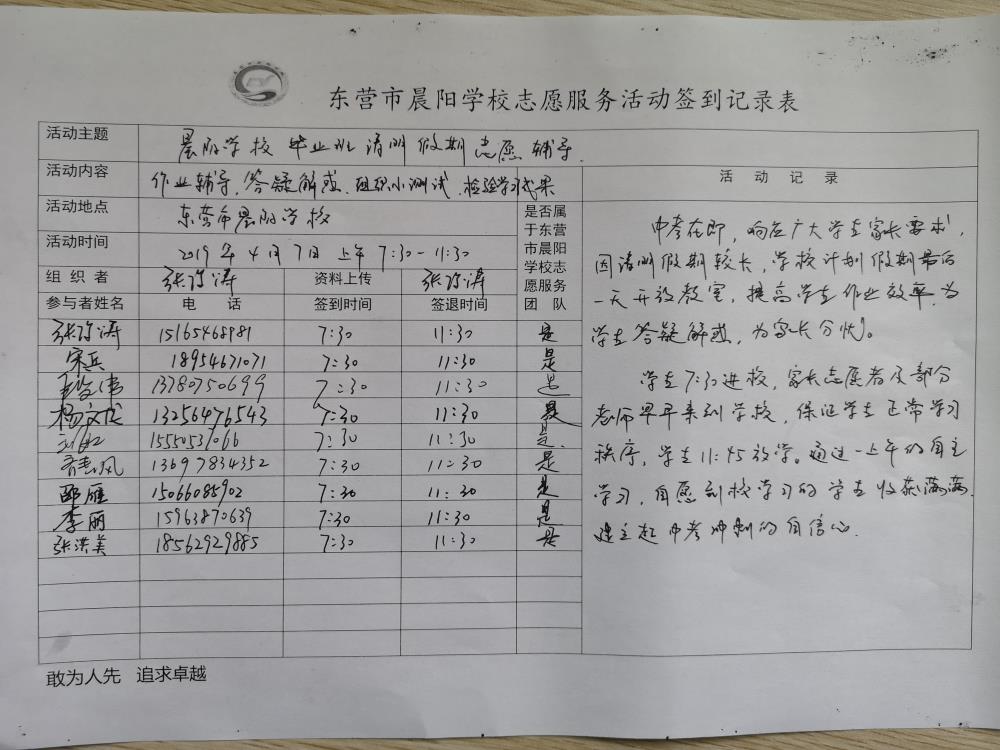 东营市晨阳学校志愿服务活动签到记录表
活动主题 晨阳学校毕业班清明假期志愿辅导.
活动内容 作业辅导、答疑解惑、组织小测试、检验学习成果
活动地点 东营市晨阳学校
活动时间 2019年4月7日上午7:30-11:30
组织者 资料上传
是否属于东营市晨阳学校志愿服务团队
参与者姓名 电话 签到时间 签退时间
15165468981 7:30 11:30 是
宋兵 18954671071 7:30 11:30 是
13780750699 7:30 11:30 是
杨文成 13256476543 7:30 11:30 是
15550531066 7:30 11:30 是.
13697834352 7:30 11:30 是
邵雁 15066085902 7:30 11:30 是
李丽 15963870639 7:30 11:30 是
张洪美 18562929885 7:30 11:30 是
活动记录
中考在即,响应广大学生家长要求,
因清明假期较长,学校计划假期最后
一天开放教室,提高学生作业效率,为
学生答疑解惑,为家长分忧。
学生7:30进校,家长志愿者及部分
老师早早来到学校,保证学生正常学习
秩序,学生11:45放学。通过一上午的自主
学习,自愿到校学习的学生收获满满.
建立起中考冲刺的自信心.
敢为人先 追求卓越